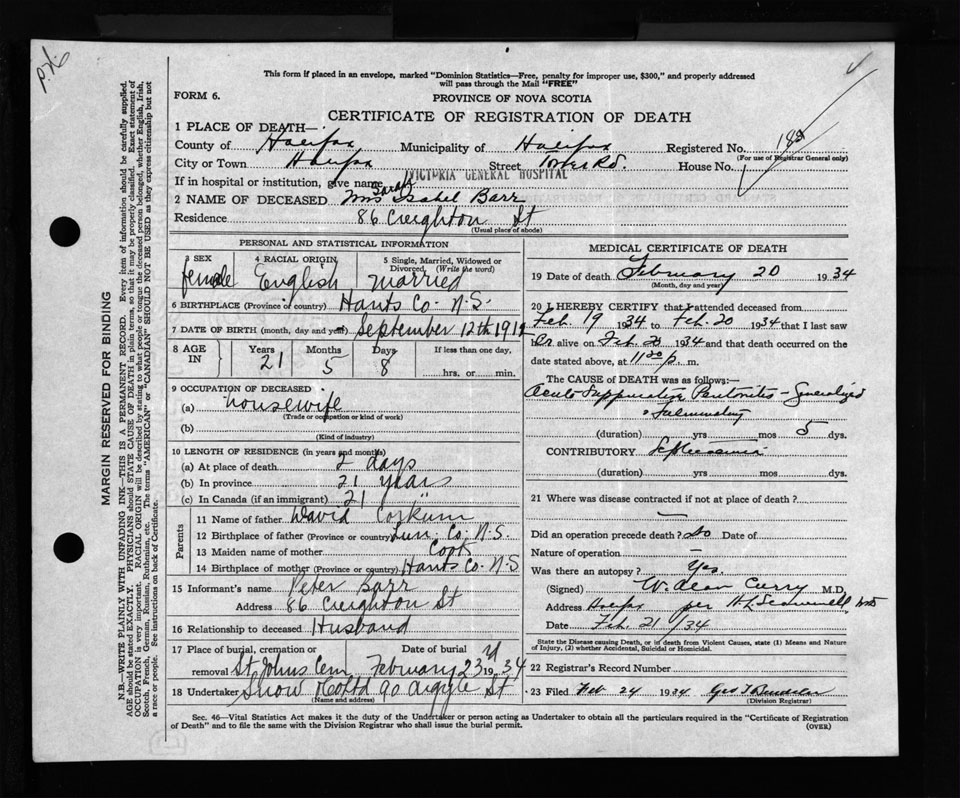 This form if placed in an envelope, marked "Dominion Statistics—Free, penalty for improper use, $300," and properly addressed
will pass through the Mail "FREE"
FORM 6.
PROVINCE OF NOVA SCOTIA
CERTIFICATE OF REGISTRATION OF DEATH
1 PLACE OF DEATH—
County of Halifax Municipality of Halifax Registered No.
(For use of Registrar General only)
City or Town Halifax Street House No.
If in hospital or institution, give name VICTORIA GENERAL HOSPITAL
Sarah
2 NAME OF DECEASED Mrs Isabel Barr
Residence 86 Creighton St
(Usual place of abode)
PERSONAL AND STATISTICAL INFORMATION
3 SEX 4 RACIAL ORIGIN 5 Single, Married, Widowed or
Divorced, (Write the word)
female English Married
6 BIRTHPLACE (Province or country) Hants Co. N.S.
7 DATE OF BIRTH (month, day and year) September 12th 1912
8 AGE IN Years Months Days If less than one day,
21 5 8 hrs. or min.
9 OCCUPATION OF DECEASED
(a) housewife
(Trade or occupation or kind of work)
(b)
(Kind of industry)
10 LENGTH OF RESIDENCE (in years and months)
(a) At place of death 2 days
(b) In province 21 years
(c) In Canada (if an immigrant) 21 "
Parents
11 Name of father David Corkum
12 Birthplace of father (Province or country) Lun. Co. N.S.
13 Maiden name of mother Cook
14 Birthplace of mother (Province or country) Hants Co. N.S
15 Informant's name Peter Barr
Address 86 Creighton St
16 Relationship to deceased Husband
17 Place of burial, cremation or Date of burial
removal St Johns Cem February 23rd 1934
18 Undertaker Snow & Co Ltd 90 Argyle St
(Name and address)
MEDICAL CERTIFICATE OF DEATH
19 Date of death February 20 1934
(Month, day and year)
20 I HEREBY CERTIFY that I attended deceased from
Feb. 19 1934 to Feb. 20 1934 that I last saw
her alive on Feb. 20 1934 and that death occurred on the
date stated above, at 11 p. m.
The CAUSE OF DEATH was as follows:—
Acute Suppurative Peritonitis — Generalized
Fulminating
(duration) yrs mos 5 dys.
CONTRIBUTORY Septicaemia
(duration) yrs mos dys.
21 Where was disease contracted if not at place of death?
—
Did an operation precede death? No Date of
Nature of operation —
Was there an autopsy? Yes.
(Signed) W. Dean Curry M.D.
Address Halifax per
Date Feb. 21/34
State the Disease causing Death, or in death from Violent Causes, state (1) Means and Nature
of Injury, (2) whether Accidental, Suicidal or Homicidal.
22 Registrar's Record Number
23 Filed Feb 24 1934
(Division Registrar)
Sec. 46—Vital Statistics Act makes it the duty of the Undertaker or person acting as Undertaker to obtain all the particulars required in the "Certificate of Registration
of Death" and to file the same with the Division Registrar who shall issue the burial permit.
(OVER)
MARGIN RESERVED FOR BINDING
N.B.—WRITE PLAINLY WITH UNFADING INK—THIS IS A PERMANENT RECORD. Every item of information should be carefully supplied.
AGE should be stated EXACTLY. PHYSICIANS should STATE CAUSE OF DEATH in plain terms, so that it may be properly classified. Exact statement of
OCCUPATION is very important. RACIAL ORIGIN will be described by stating to what people or tongue the deceased person belonged, whether English, Irish,
Scotch, French, German, Russian, Ruthenian, etc. The terms "AMERICAN" or "CANADIAN" SHOULD NOT BE USED as they express citizenship but not
a race or people. See instructions on back of Certificate.